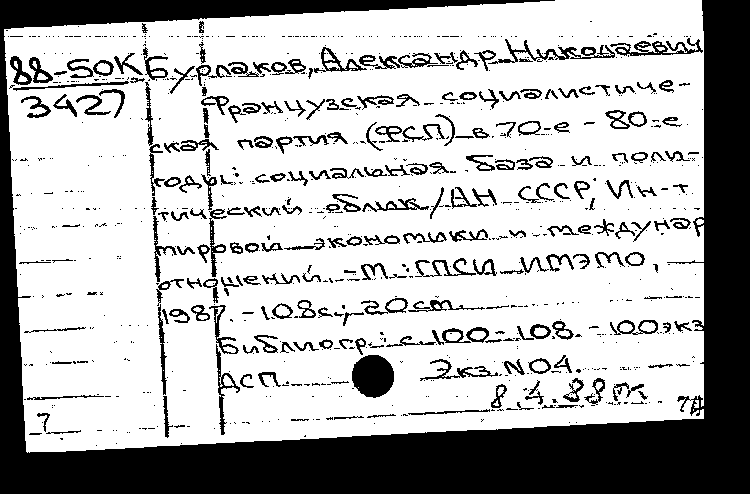 88-50К Бурлаков, Александр Николаевич
3427 Французская социалистиче-
ская партия (ФСП) в 70-е - 80-е
годы: социальная база и поли-
тический облик / АН СССР; Ин-т
мировой экономики и междунар
отношений. - М.: ГПСИ ИМЭМО,
1987. - 108с.; 20см.
Библиогр.: с. 100-108. - 100экз
ДСП. Экз. N04.
8.4.88
7